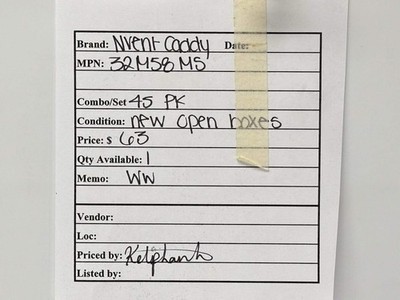 Brand: Nvent Caddy Date:
MPN: 32M58MS
Combo/Set 45 PK
Condition: new open boxes
Price: $ 63
Qty Available: 1
Memo: WW
Vendor:
Loc:
Priced by:
Listed by: